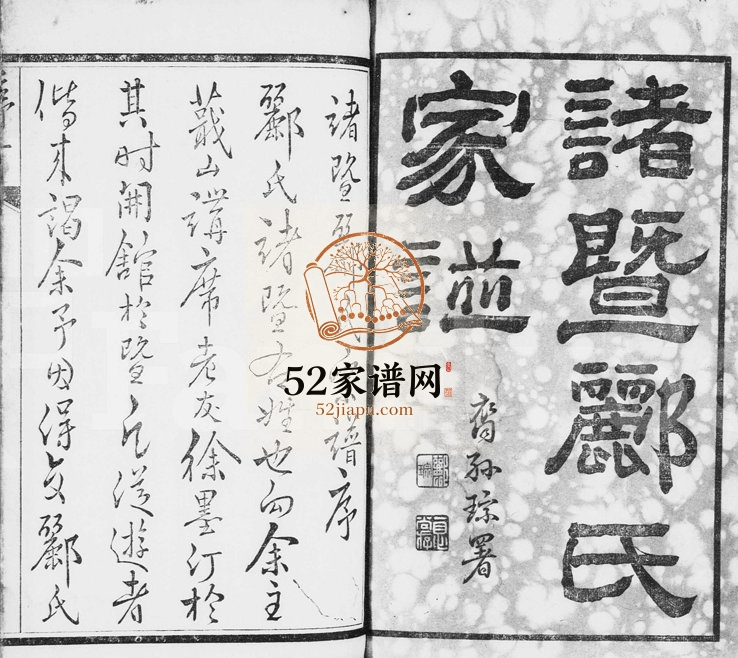 諸暨酈氏
家譜
裔孫琮署
諸暨酈氏宗譜序
酈氏諸暨右姓也向余主
蕺山講席老友徐墨汀於
其时開館於暨凡從遊者
偕来謁余予因得交酈氏
52家谱网
52jiapu.com